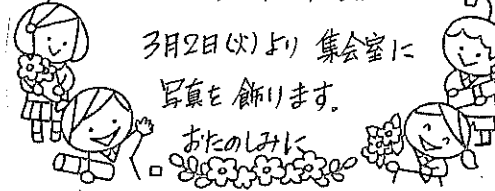 3月2日(火)より 集会室に
写真を飾ります。
おたのしみに